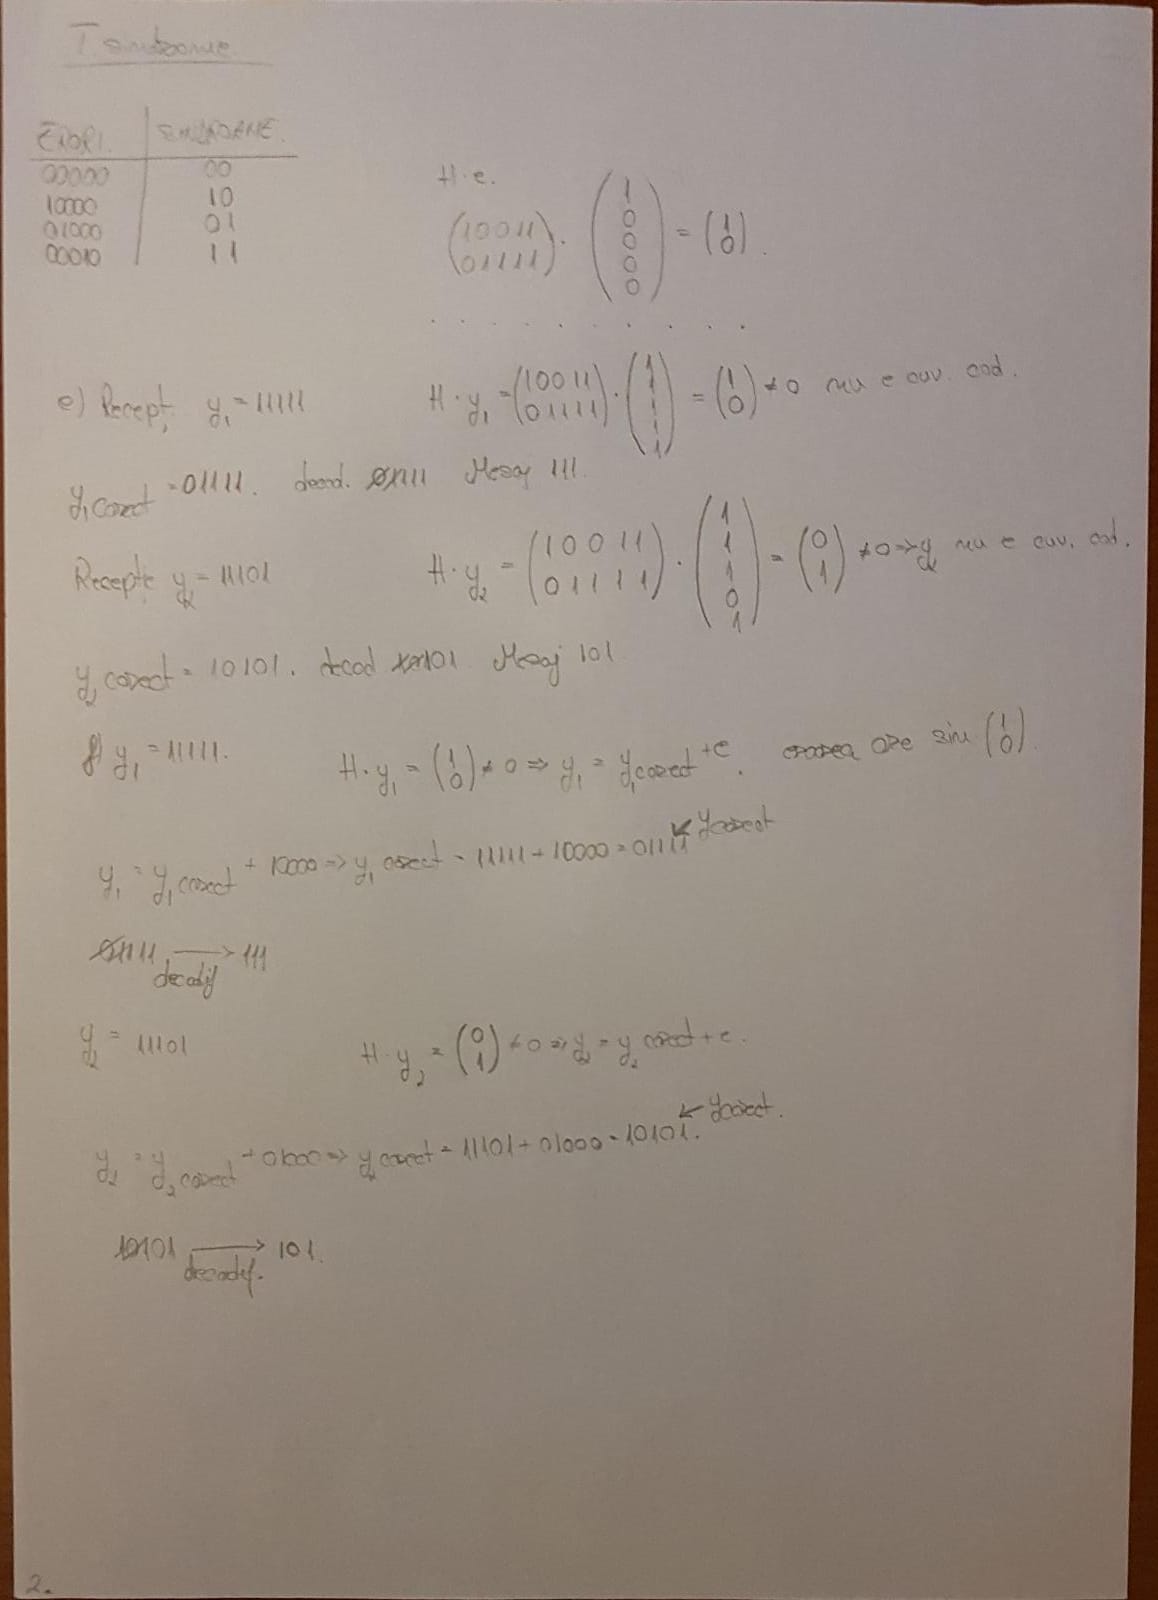 T sindroame
ERORI. SINDROAME.
00000 00
10000 10
01000 01
00010 11
H·e.
(10011 / 01111) · (1 0 0 0 0) = (1 0).
. . . . . . . . . .
e) Recept. y₁ = 11111 H·y₁ = (10011 / 01111) · (1 1 1 1 1) = (1 0) ≠ 0 nu e cuv. cod.
y₁ corect = 01111. decod. 01111 Mesaj 111.
Recept. y₂ = 11101 H·y₂ = (10011 / 01111) · (1 1 1 0 1) = (0 1) ≠ 0 ⇒ y₂ nu e cuv. cod.
y₂ corect = 10101. decod 10101 Mesaj 101
f) y₁ = 11111. H·y₁ = (1 0) ≠ 0 ⇒ y₁ = y₁ corect + e. eroarea are sin (1 0).
y₁ = y₁ corect + 10000 ⇒ y₁ corect = 11111 + 10000 = 01111 ↙ y corect
01111 → 111
decodif
y₂ = 11101 H·y₂ = (0 1) ≠ 0 ⇒ y₂ = y₂ corect + e.
y₂ = y₂ corect + 01000 ⇒ y₂ corect = 11101 + 01000 = 10101. ↙ y corect.
10101 → 101.
decodif.
2.